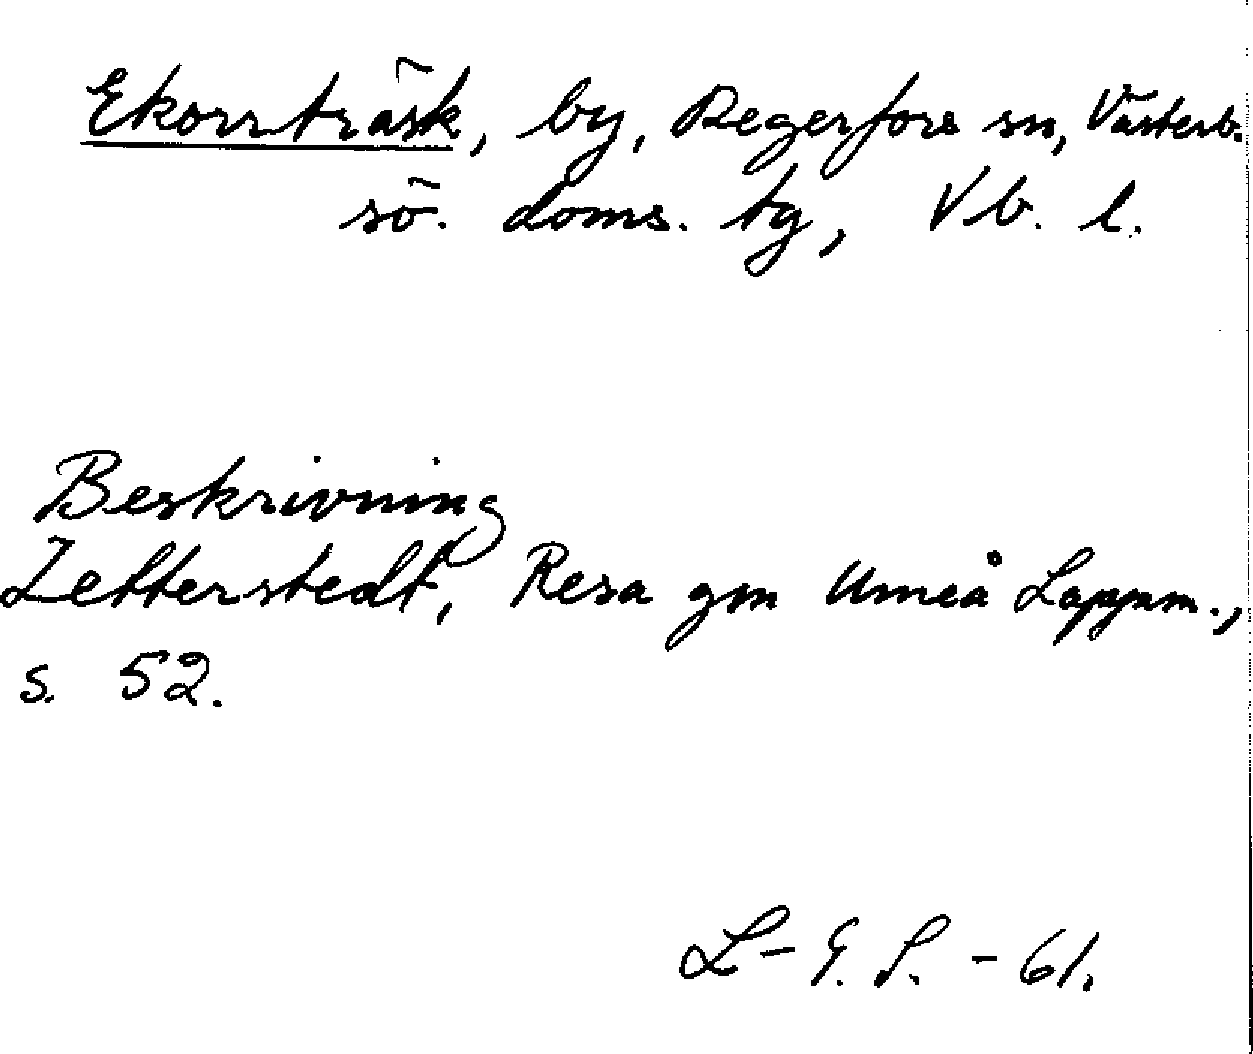 Ekorrträsk, by, Degerfors sn, Västerb.
sö. doms. tg, Vb. l.
Beskrivning
Zetterstedt, Resa gm Umeå Lappm.,
s. 52.
L-E. S. - 61.